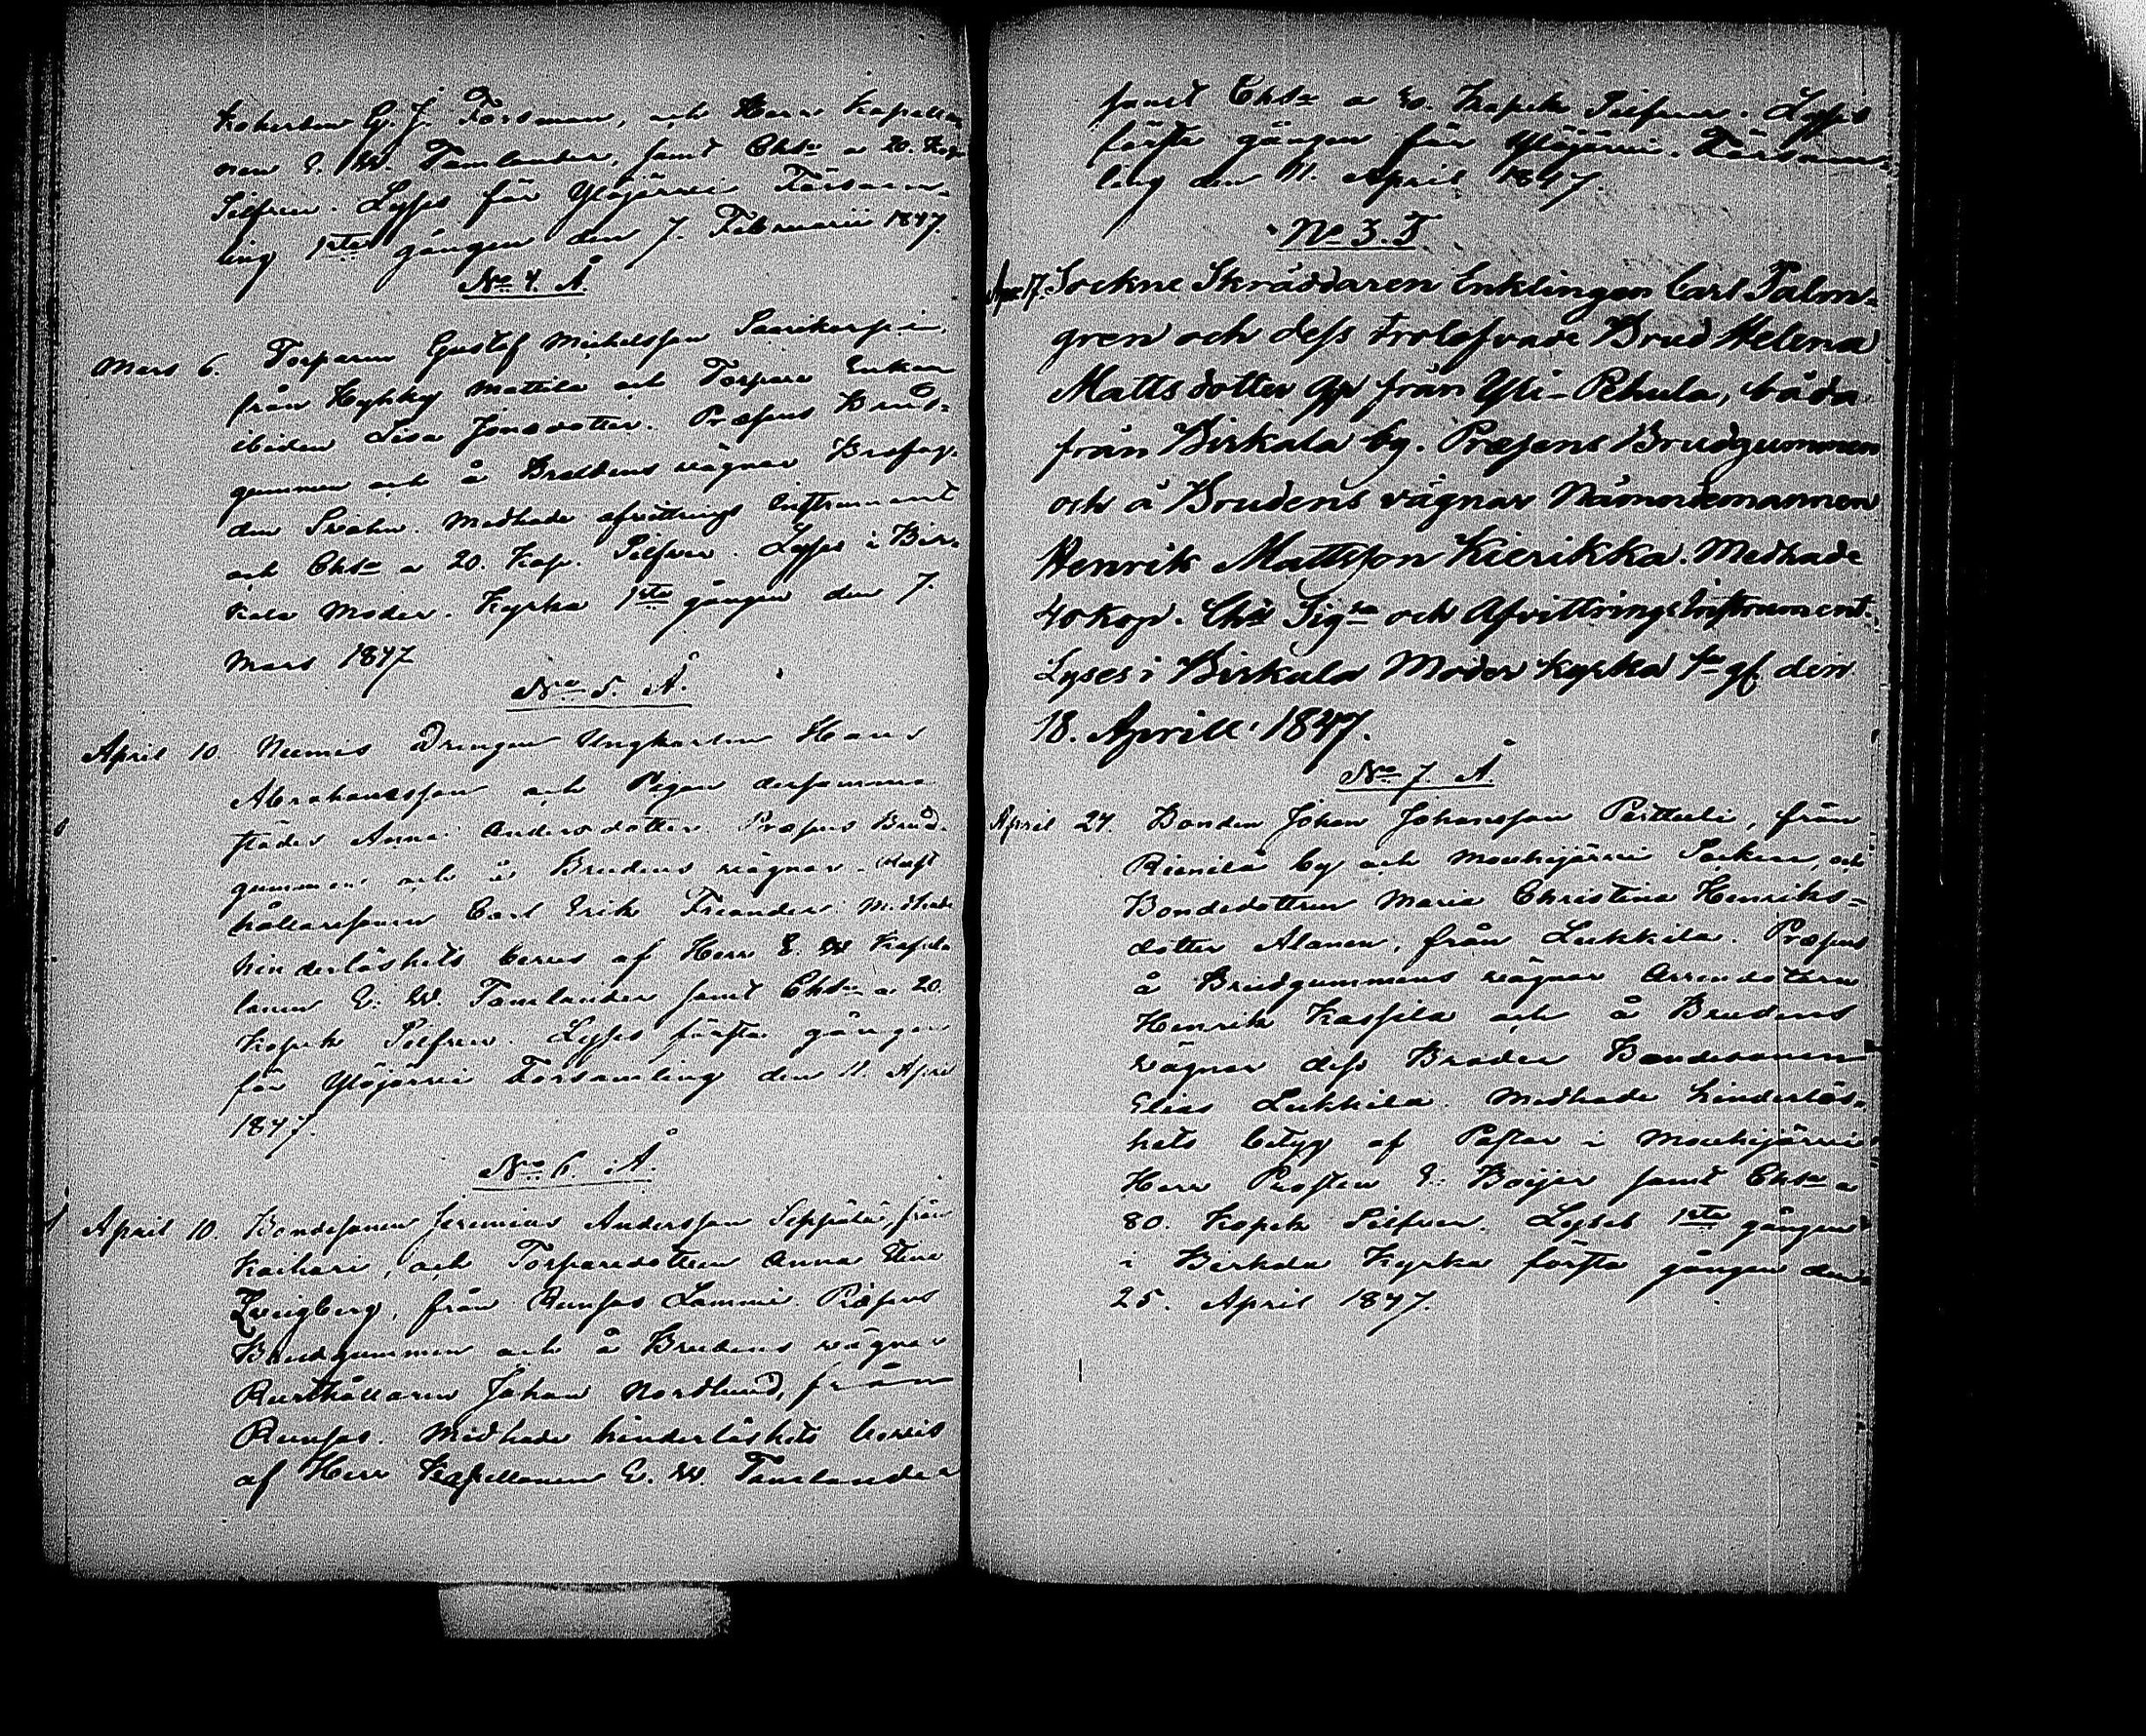 G. J. Forsman, och Herr Kapella-
nen E. W. Tamlander, samt Chta a 20. Kop
Silfver. Lyses för Ylöjärvi Försam-
ling 1sta gången den 7. Februarii 1847
No 4. Å
Mars 6. Torparen Gustaf Michelsson
från Hyhky Mattila och Torpare Enkan
ibidem Lisa Jonsdotter. Præsens Brud-
gummen och å Brudens vägnar
den Medhade afvittrings Instrument
och Chta a 20. Kop. Silfver. Lyses i Bir-
kala Moder. Kyrka 1sta gången den 7.
Mars 1847
No 5. Å.
April 10. Niemis Drengen Ungkarlen Hans
Abrahamsson och Pigan dersamma
städes Anna Andersdotter. Præsens Brud-
gummen och å Brudens vägnar Rust
hållaresonen Carl Erik Medhade
hinderlöshets bevis af Herr E. W. Kapela
lanen E. W. Tamlander samt Chta a 20.
Kopek Silfver. Lyses första gången
för Ylöjärvi Församling den 11. April
1847.
No 6. Å.
April 10. Bondesonen Jeremias Andersson Seppälä, från
Kaihari, och Torparedottren Anna Stina
Zveigberg, från Runsas Lammi. Præsens
Brudgummen och å Brudens vägnar
Rusthållaren Johan Nordlund, från
Runsas. Medhade hinderlöshets bevis
af Herr Kapellanen E. W. Tamlander
samt Chta a 20. Kopek Silfver. Lyses
första gången för Ylöjärvi Församm-
ling den 11. April 1847.
No 3. T
Apr. 17. Sockne Skräddaren Enklingen Carl Palm-
gren och dess trolofvade Brud Helena
Matts dotter från Yli-Pihula, båda
från Birkala by. Præsens Brudgummen
och å Brudens vägnar Nämndemannen
Henrik Mattsson Kierikka. Medhade
40 kop. Cha Sigta och Afvittrings Instrument.
Lyses i Birkala Moder kyrka 1a gg den
18. Aprill 1847.
No 7. Å
April 24. Bonden Johan Johansson Perttuli, från
by och Mouhijärvi Socken, och
Bondedottren Maria Christina Henriks-
dotter Alanen, från Lukkila. Præsens
å Brudgummens vägnar Arrendatorn
Henrik Kassila och å Brudens
vägnar dess Broder Bondesonen
Elias Lukkila. Medhade hinderlös-
hets betyg af Pastor i Mouhijärvi
Herr Prosten E. Boijer samt Chta a
80. Kopek Silfver. Lyses 1sta gången
i Birkala Kyrka första gången den
25. April 1847.